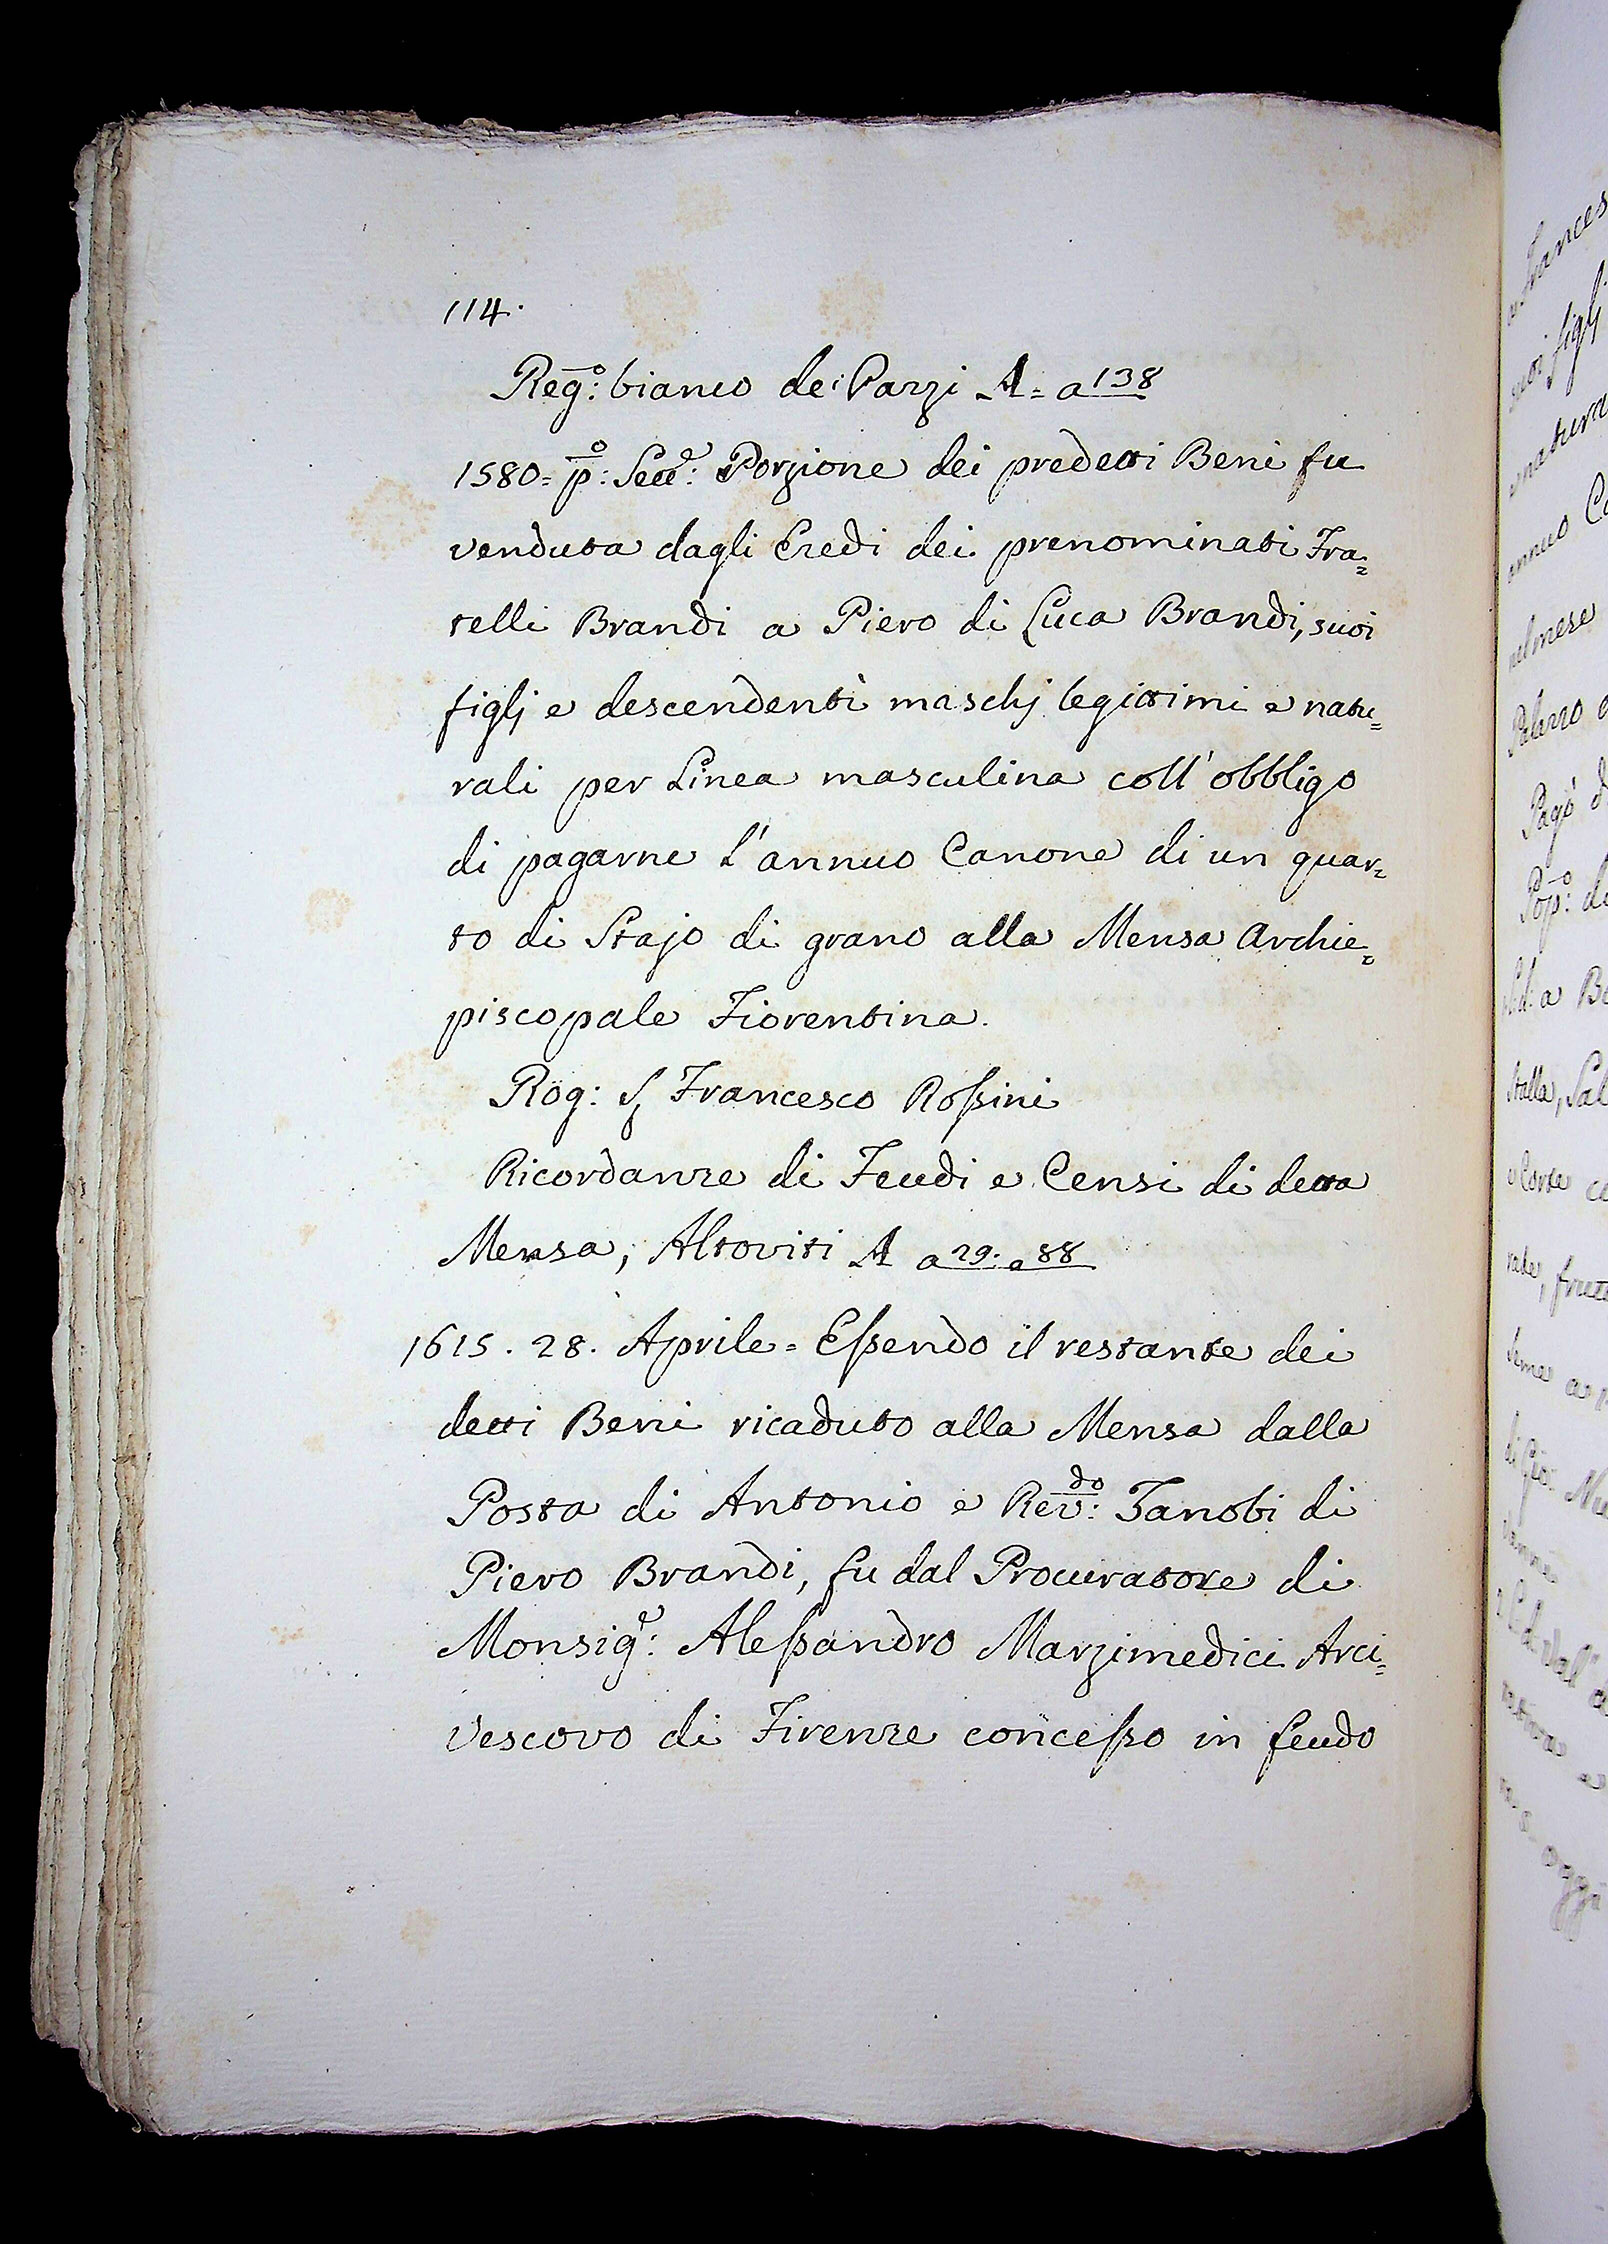 114.
Reg:º bianco dei Pazzi A= a 138
1580= p:º Sette: Porzione dei predetti Beni fu
venduta dagli Eredi dei prenominati Fra=
telli Brandi a Piero di Luca Brandi, suoi
figlj e descendenti maschj legittimi e natu=
rali per Linea masculina coll' obbligo
di pagarne l'annuo Canone di un quar=
to di Stajo di grano alla Mensa Archie=
piscopale Fiorentina.
Rog: S. Francesco Roſsini
Ricordanze di Feudi e Censi di detta
Mensa, Altoviti A a 29. a 88
1615. 28. Aprile= Eſsendo il restante dei
detti Beni ricaduto alla Mensa dalla
Posta di Antonio e Rev:do Zanobi di
Piero Brandi, fu dal Procuratore di
Monsig:e Aleſsandro Marzimedici Arci=
vescovo di Firenze conceſso in feudo
suoi figlj
natura
annuo
nel mese
Palazzo
Pagò
Pop:º
Stalla, Sal
e Corte